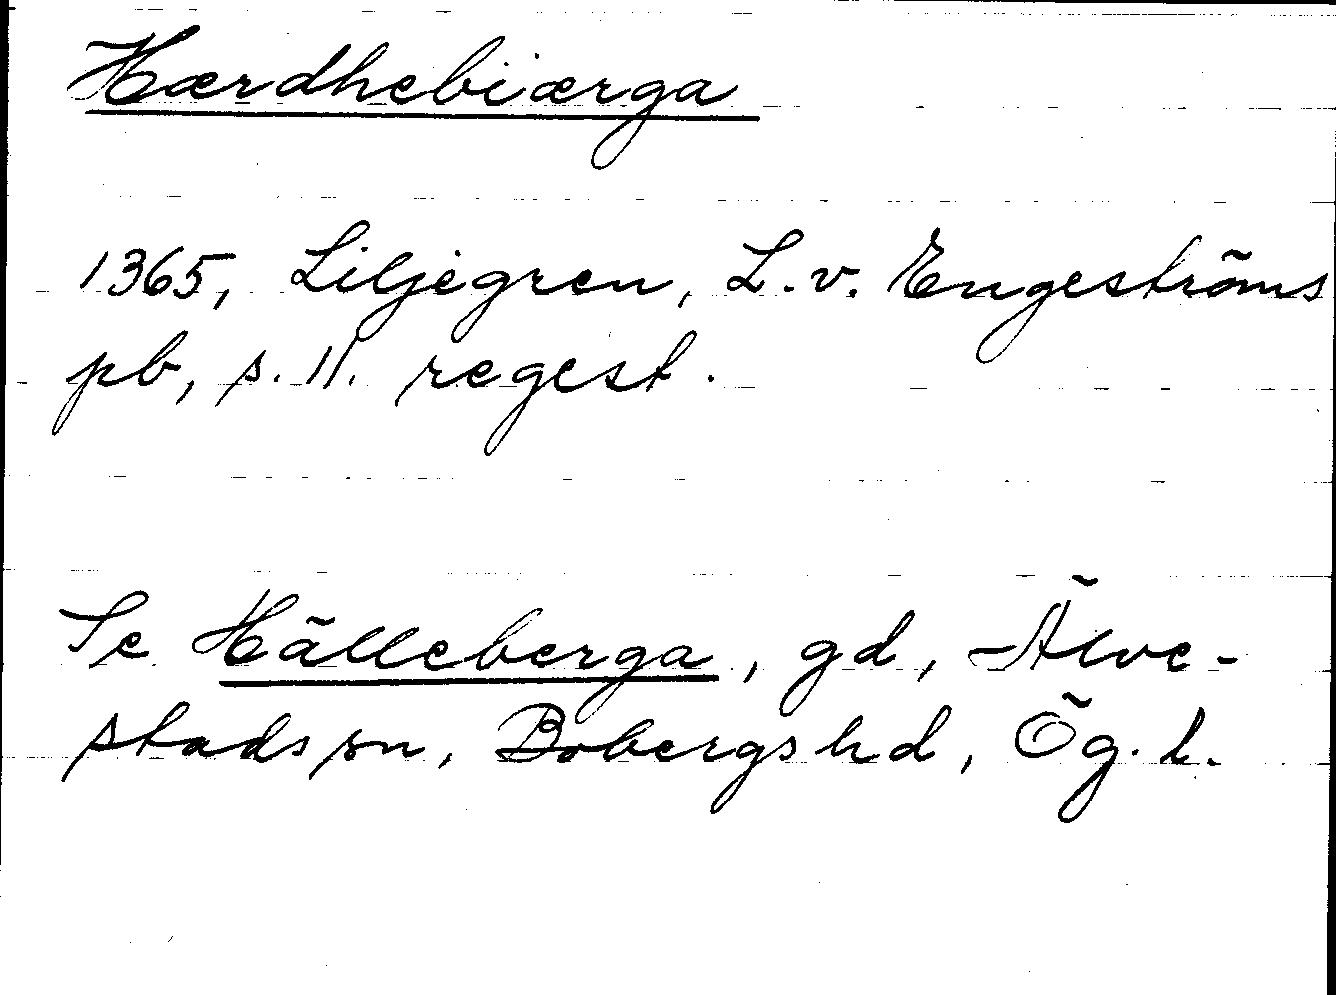 Hærdhebiærga
1365, Liljegren, L. v. Engeströms
pb, s. 11. regest.
Se Hälleberga, gd, Älve-
stads sn, Bobergs hd, Ög. l.